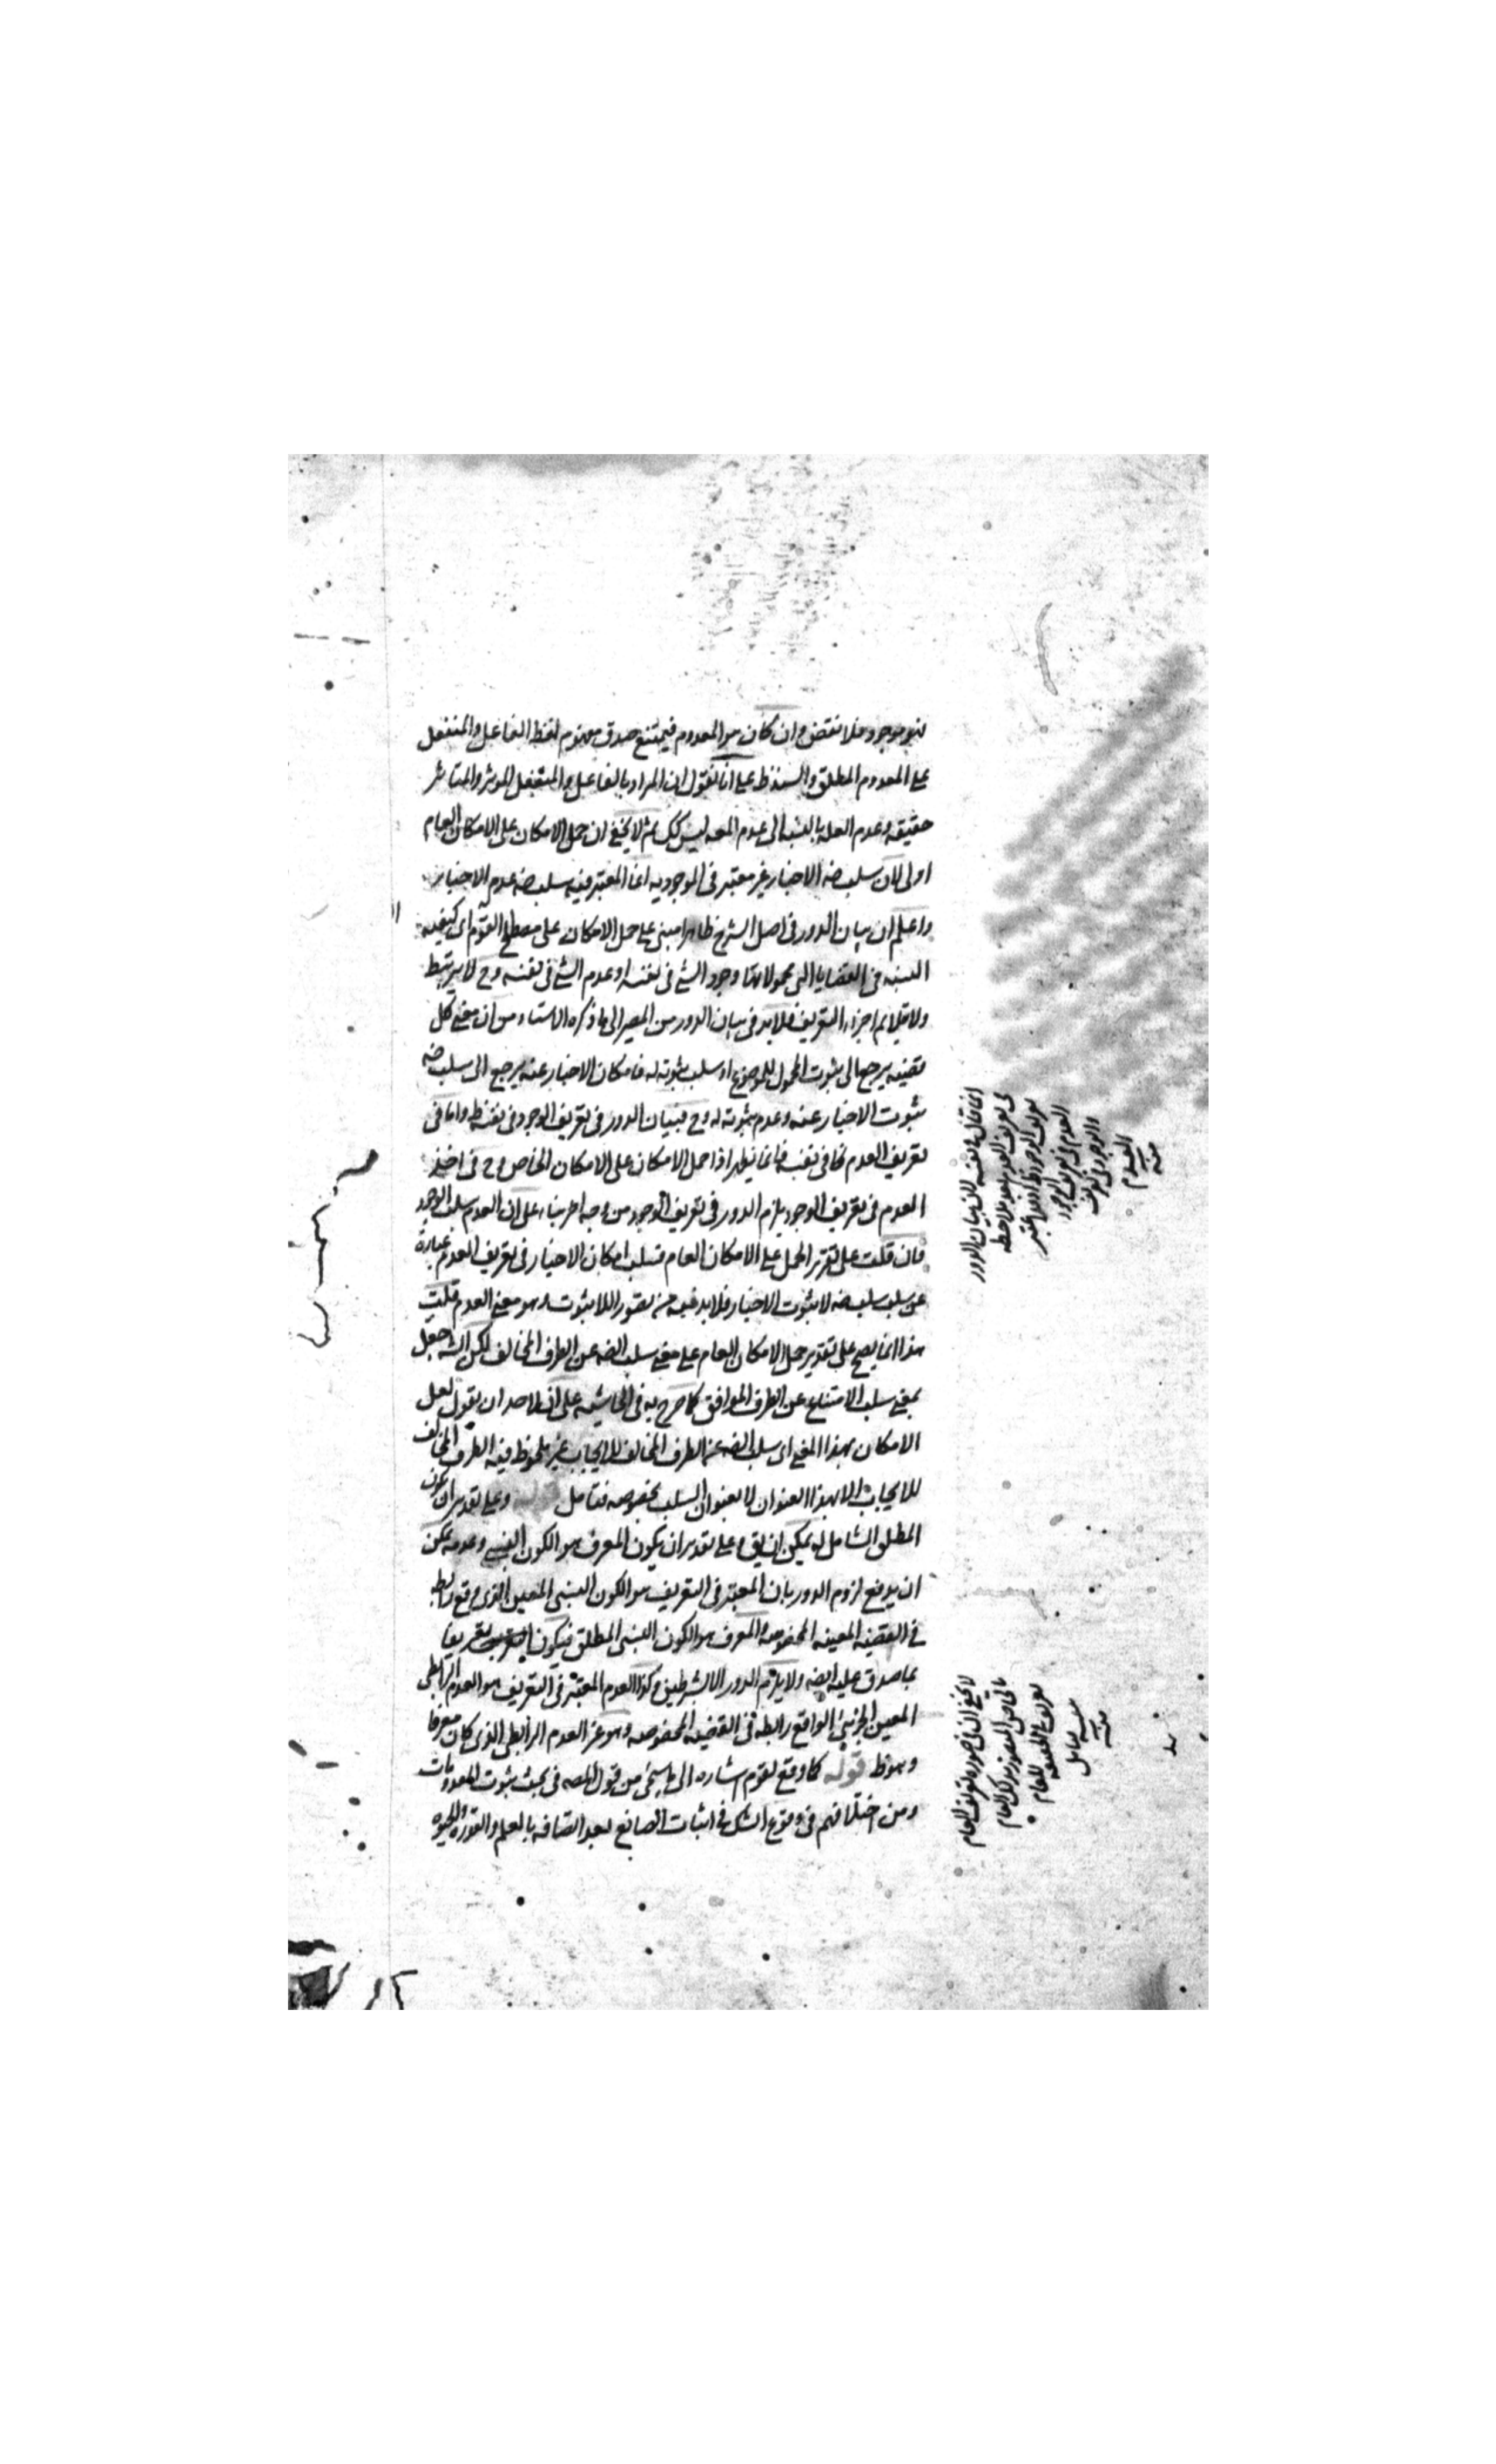 فهو موجود فلا نقتض وان كان هو المعدوم فيمتنع صدق مفهوم لفظ الفاعل والمنفعل
على المعدوم المطلق والسند ظ على انا نقول ان المراد بالفاعل والمنفعل المؤثر والمتاثر
حقيقه وعدم العله بالنسبه الى عدم المعه ليس كك ثم لا يخفى ان حمل الامكان على الامكان العام
اولى لان سلب ضه الاخبار غير معتبر فى الموجوديه انما المعتبر فيه سلب ضه عدم الاخبار
واعلم ان بيان الدور فى اصل الشرح ظاهرا مبنى على حمل الامكان على مصطلح القوم اى كيفيه
النسبه فى القضايا التى محمولاتها وجود الشئ فى نفسه او عدم الشئ فى نفسه وح لا يرتبط
ولا يتلايم اجزاء التعريف فلا بد فى بيان الدور من المصير الى ما ذكره الاستاد من ان معنى كل
قضيه يرجع الى ثبوت المحمول للموضوع او سلب ثبوته له فامكان الاخبار عنه يرجع الى سلب ضه
ثبوت الاخبار عنه وعدم ثبوته له وح فبيان الدور فى تعريف الوجود فى نفسه ظ واما فى
تعريف العدم كما فى نفسه فانما يظهر اذا حمل الامكان على الامكان الخاص وح فى اخذ
العدم فى تعريف الوجود يلزم الدور فى تعريف الوجود من وجه اخر بناء على ان العدم سلب الوجود
فان قلت على تقرير الحمل على الامكان العام فسلب امكان الاخبار فى تعريف العدم عبارة
عن سلب سلب ضه لا ثبوت الاخبار فلا بد فيه من تصور اللاثبوت وهو معنى العدم قلت
هذا انما يصح على تقدير حمل الامكان العام على معنى سلب الضه عن الطرف المخالف لكن الشه جعل
بمعنى سلب الامتناع عن الطرف الموافق كما صرح به فى الحاشيه على ان لاحد ان يقول لعل
الامكان بهذا المعنى اى سلب الضه عن الطرف المخالف للايجاب غير ملحوظ فيه الطرف المخالف
للايجاب الا بهذا العنوان لا بعنوان السلب بخصوصه فتامل قوله وعلى تقدير ان يكون
المطلق الشامل له يمكن ان يق وعلى تقدير ان يكون المعرف هو الكون النسبى وعدمه يمكن
ان يدفع لزوم الدور بان المعتبر فى التعريف هو الكون النسبى المعين الذى وقع رابطه
فى القضيه المعينه المخصوصه والمعرف هو الكون النسبى المطلق فيكون تعريفا
بما صدق عليه ايضه ولا يلزم الدور الا بشرطين وكذا العدم المعتبر فى التعريف هو العدم الرابطى
المعين الجزئى الواقع رابطه فى القضيه المخصوصه وهو غير العدم الرابطى الذى كان معرفا
وهو ظ قوله كما وقع لقوم اشاره الى ما سيجئ من قول المصه فى بحث ثبوت المعدومات
ومن اختلافهم فى وقوع الشك فى اثبات الصانع بعد اتصافه بالعلم والقدره والحيوه
انما قال فى نفسه لان بيان الدور
فى تعريف العدم بعد ملاحظه
تعريف الوجود ظ اذ قد اعتبر
العدم فى تعريف الوجود
والوجود فى تعريف
العدم
منه
لا يخفى ان فى صوره تعريف العام
تعريفا بالحقيقه للعام
تامل
منه